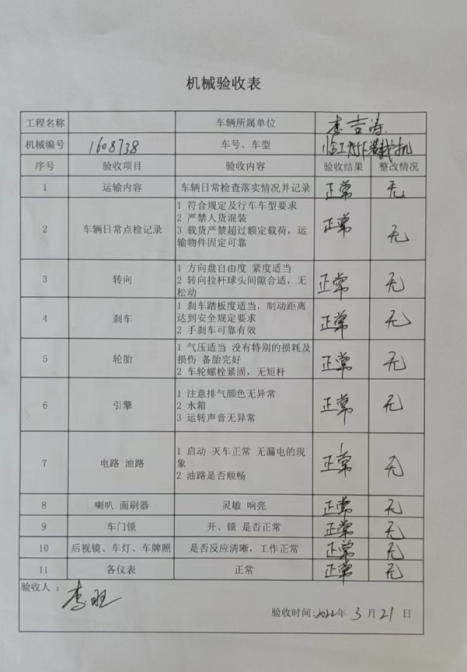 机械验收表
工程名称 车辆所属单位 李吉涛
机械编号 1608738 车号、车型 临工75F装载机
序号 验收项目 验收内容 验收结果 整改情况
1 运输内容 车辆日常检查落实情况并记录 正常 无
2 车辆日常点检记录 1 符合规定及行车车型要求 正常 无
2 严禁人货混装
3 载货严禁超过额定载荷，运
输物件固定可靠
3 转向 1 方向盘自由度 紧度适当 正常 无
2 转向拉杆球头间隙合适，无
松动
4 刹车 1 刹车踏板度适当，制动距离 正常 无
达到安全规定要求
2 手刹车可靠有效
5 轮胎 1 气压适当 没有特别的损耗及 正常 无
损伤 备胎完好
2 车轮螺栓紧固，无短杆
6 引擎 1 注意排气颜色无异常 正常 无
2 水箱
3 运转声音无异常
7 电路 油路 1 启动 灭车正常 无漏电的现 正常 无
象
2 油路是否顺畅
8 喇叭 面刷器 灵敏 响亮 正常 无
9 车门锁 开、锁 是否正常 正常 无
10 后视镜、车灯、车牌照 是否反应清晰，工作正常 正常 无
11 各仪表 正常 正常 无
验收人：
验收时间:2022年 3 月 21 日